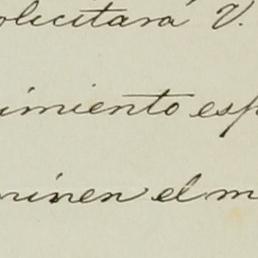 olicitara V.
imiento esp
minen el m